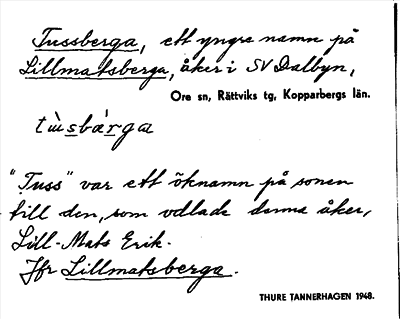 Tussberga, ett yngre namn på
Lillmatsberga, åker i SV Dalbyn,
Ore sn, Rättviks tg, Kopparbergs län.
tu̇̀sbárga
"Tuss" var ett öknamn på sonen
till den, som odlade denna åker,
Lill-Mats Erik.
Jfr Lillmatsberga.
THURE TANNERHAGEN 1948.